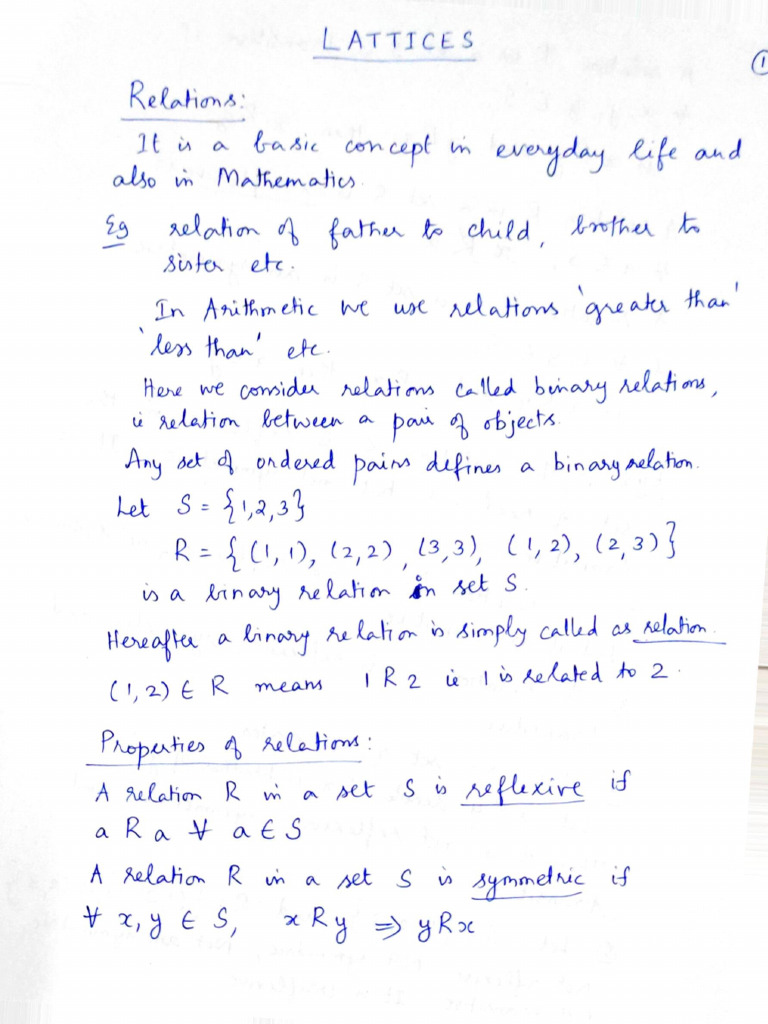 LATTICES
1
Relations:
It is a basic concept in everyday life and
also in Mathematics.
Eg relation of father to child, brother to
sister etc.
In Arithmetic we use relations 'greater than'
'less than' etc.
Here we consider relations called binary relations,
ie relation between a pair of objects.
Any set of ordered pairs defines a binary relation.
Let S = {1,2,3}
R = { (1,1), (2,2), (3,3), (1,2), (2,3)}
is a binary relation in set S.
Hereafter a binary relation is simply called as relation.
(1,2) ∈ R means 1 R 2 ie 1 is related to 2.
Properties of relations:
A relation R in a set S is reflexive if
a R a ∀ a ∈ S
A relation R in a set S is symmetric if
∀ x, y ∈ S, x R y ⇒ y R x